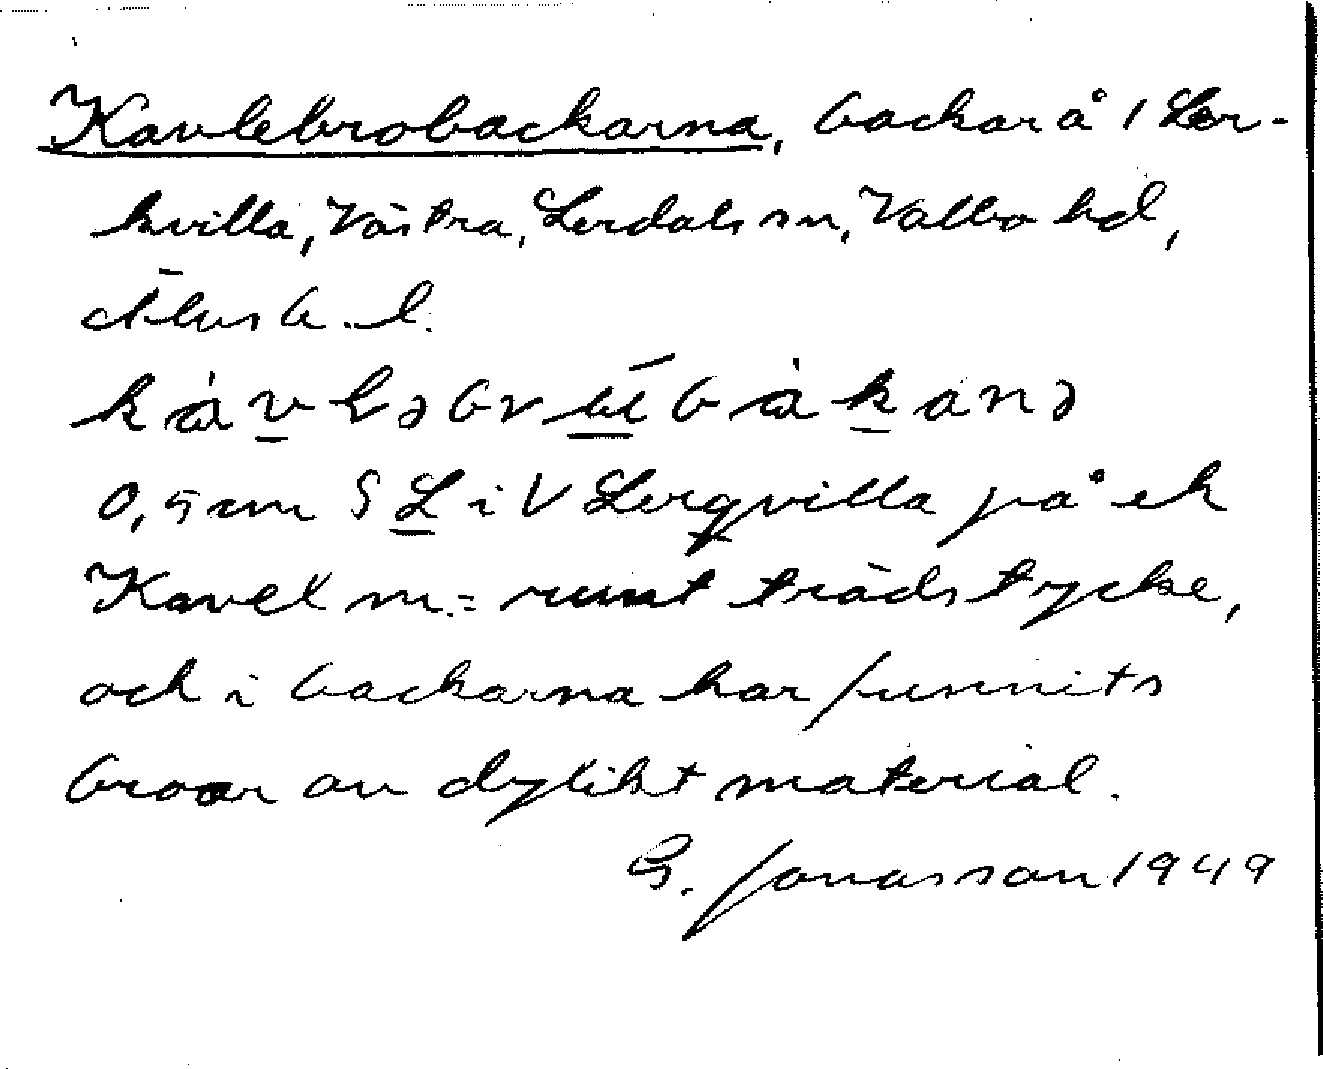 Kavlebrobackarna, backar å 1 Ler-
kvilla, Västra, Lerdals sn, Valbo hd,
Älvsb. l.
kàvləbrúbàkanə
0,5 cm S L i V Lerqvilla på ek
Kavel m.= runt trädstycke,
och i backarna har funnits
broar av dylikt material.
G. Jonasson 1949